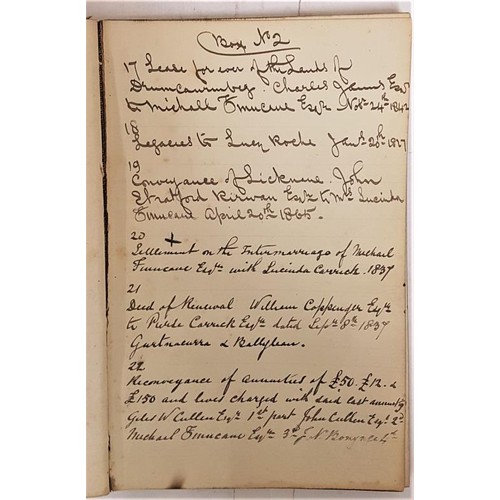 Box No 2
17 Lease for ever of the Lands of
Charles James Esqr
to Michall Finucane Esqre Novr 24th 1842
18
Legacies to Lucy Roche Jany 25th
19
Conveyance of Licknune John
Stratford Kirwan Esqre to Mrs Lucinda
Finucane April 20th 1865.
20
Settlement on the Intermarriage of Michael
Finucane Esqre with Lucinda Carrick 1837
21
Deed of Renewal William Coppenger Esqre
to Pierse Carrick Esqre dated Septr 8th 1837
Gurtnacurra & Ballylean.
22
Reconveyance of annuities of £50. £12. &
£150 and lives charged with said last annuity
Giles W Cullen Esqre 1st part John Cullen Esqr 2d
Michael Finucane Esqre 3d J N 4th